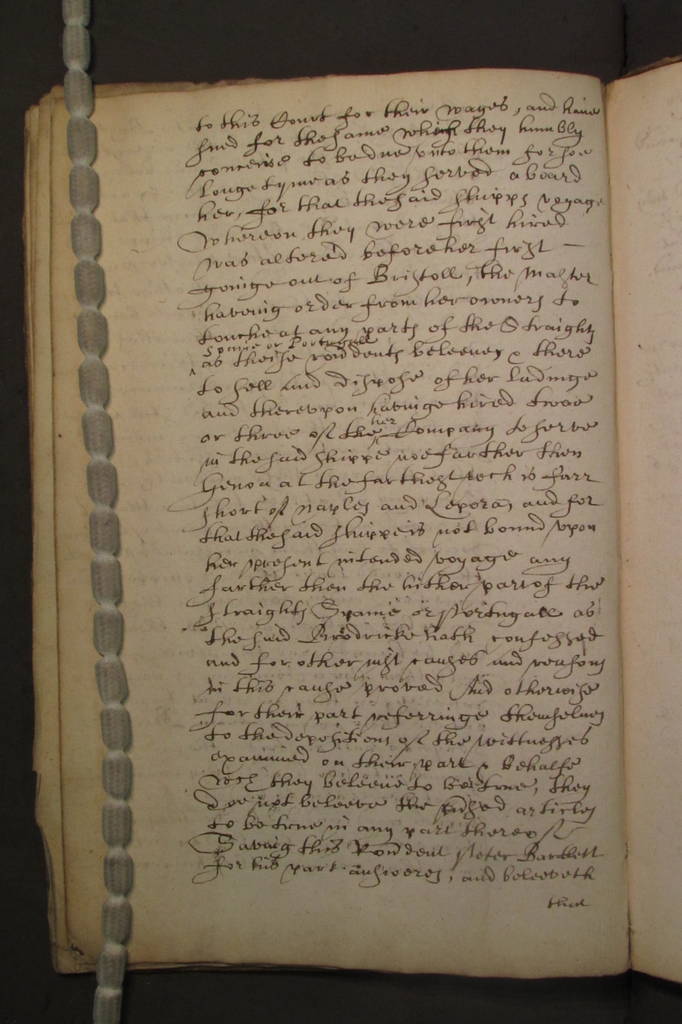 to this Court for their wages, and haue
sued for the same which they humbly
conceive to be due vnto them for soe
longe tyme as they served aboard
her, for that the said shipps voyage
Whereon they were first hired
was altered before her first
goinge out of Bristoll, the Master
haveing order from her owners to
touche at any parts of the Straights
Spaine or Portugall
as theise rondents beleeven & there
to sell and dispose of her ladinge
and therevpon haveinge hired twoe
or three of the her Company to serve
in the said shippe noe farther then
Genoa at the farthest wch is farr
short of Naples and and for
that the said shipp is not bound vpon
her present intended voyage any
farther then the hither part of the
straights Spaine or Portugall as
the said Brodricke hath confessed
and for other iust causes and reasons
in this cause proved And otherwise
for their part referringe themselues
to the depositions of the wittnesses
examined on their part & behalfe
wch they beleeve to be true, they
doe not beleeve the articles
to be true in any part thereof
Saveing this Rondent Peter Bartlett
for his part answeres, and beleeveth
that